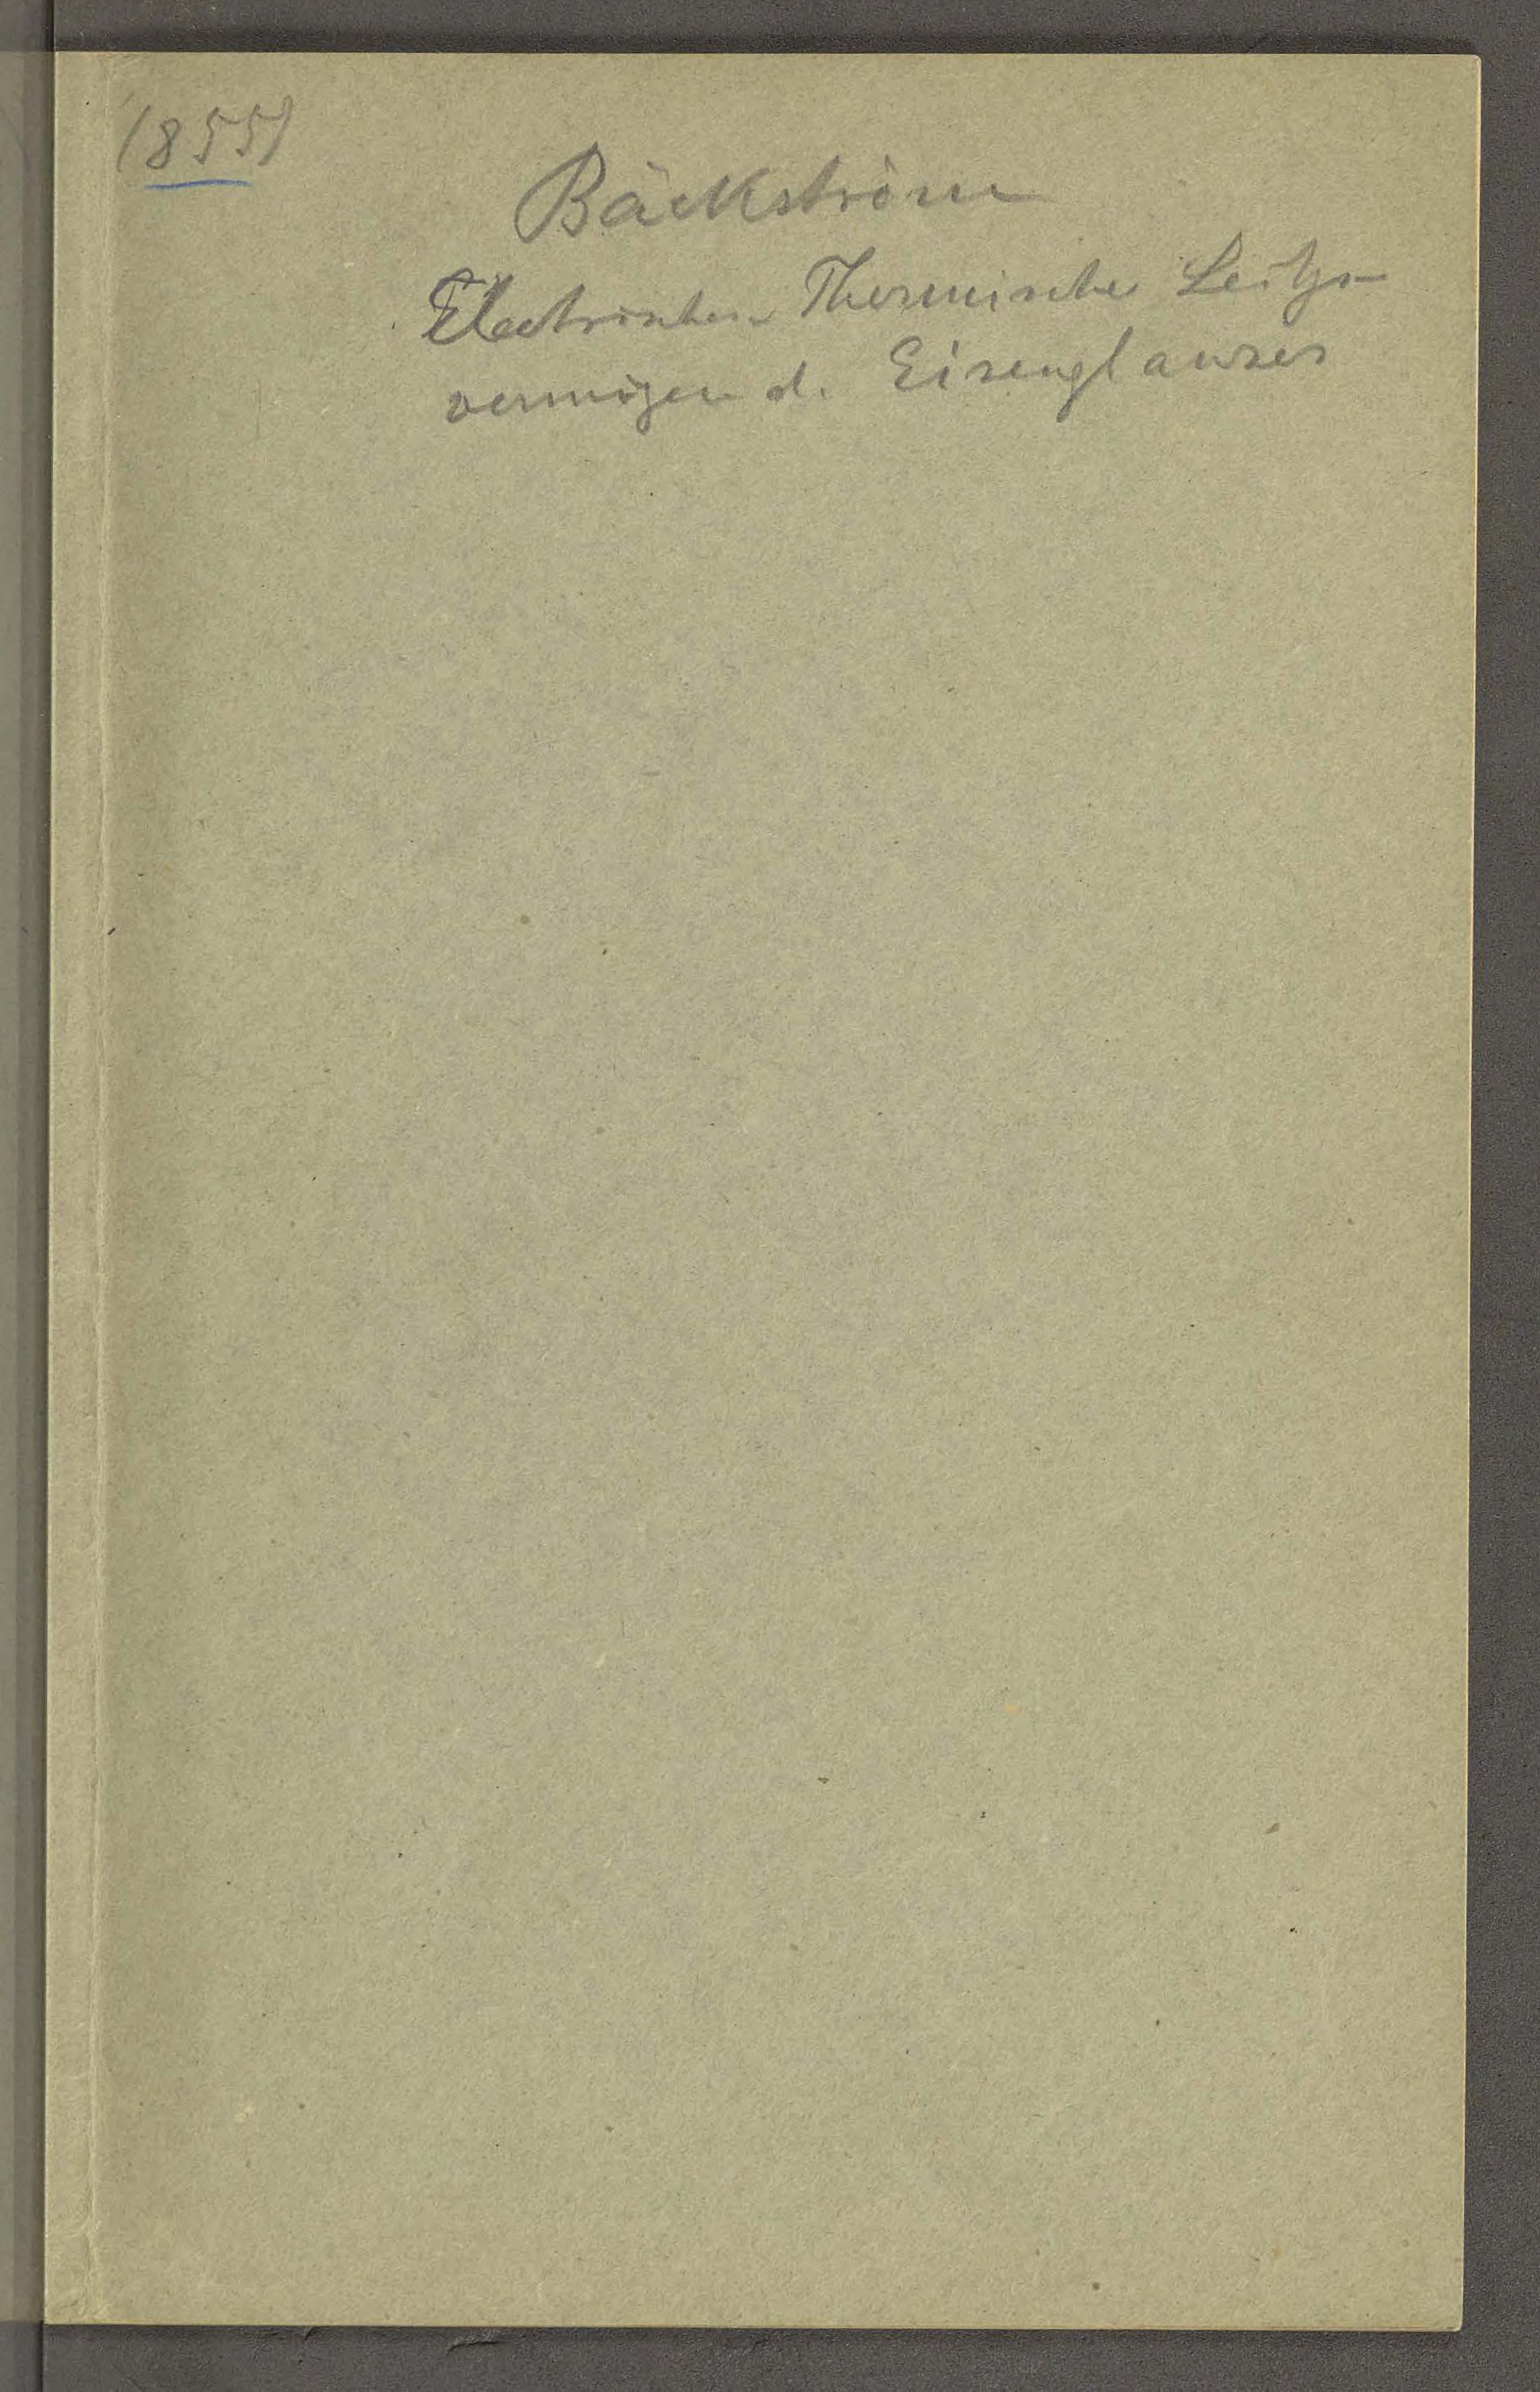 (855)
Bäckström
Electrischen Thermische Leitgs-
vermögen d. Eisenglanzes